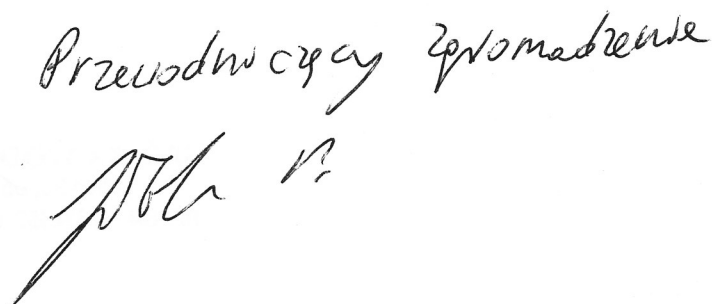 Przewodniczący zgromadzenia